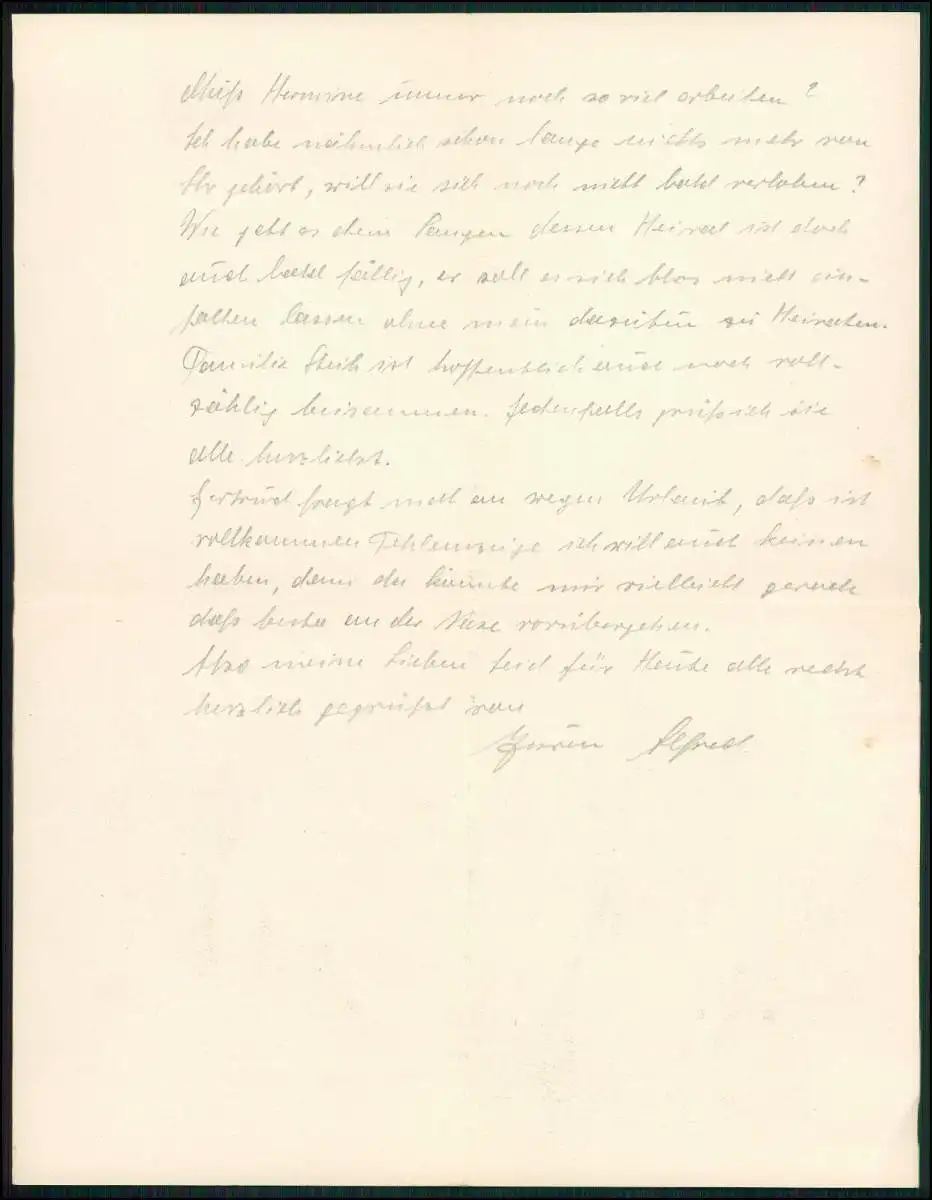 Muß Hermine immer noch so viel arbeiten?
Ich habe nähmlich schon lange nichts mehr von
Ihr gehört, will sie sich noch nicht bald verloben?
Wie geht es dem Langen dessen Heirat ist doch
auch bald fällig, er soll es sich blos nicht ein-
fallen lassen ohne mein dasein zu Heiraten.
Familie ist hoffentlich auch noch voll-
zählig beisammen. Jedenfalls grüß ich sie
alle herzlichst.
Gertrud fragt mich an wegen Urlaub, daß ist
vollkommen Fehlanzeige ich will auch keinen
haben, denn da könnte mir vielleicht gerade
daß beste an der Nase vorübergehen.
Also meine Lieben seid für Heute alle recht
herzlich gegrüßt von
Euren Alfred